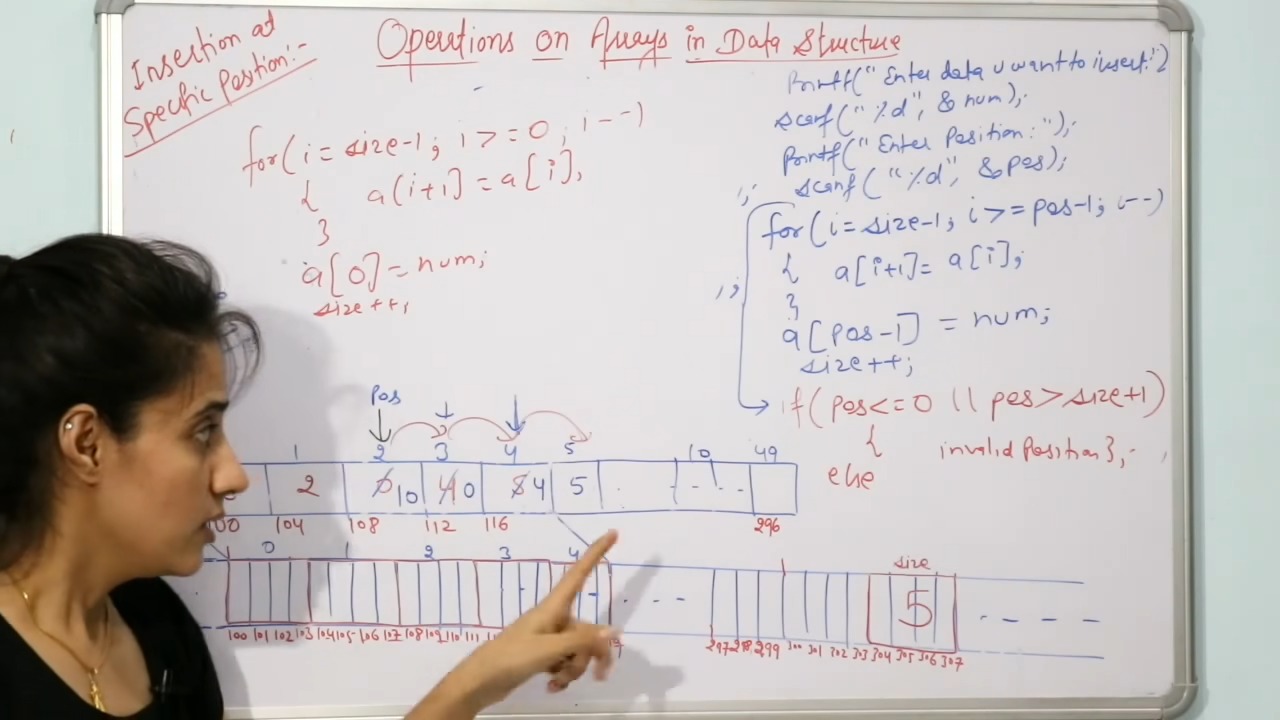 Insertion at
Specific Position:-
Operations on Arrays in Data Structure
for(i=size-1; i>=0; i--)
{ a(i+1]=a[i];
}
a[0]=num;
size++;
Printf("Enter data u want to insert:")
scanf("%d", &num);
Printf("Enter Position:");
scanf("%d", &pos);
for(i=size-1; i>=pos-1; i--)
{ a[i+1]=a[i];
}
a[pos-1] = num;
size++;
if(pos<=0 || pos>size+1)
{ invalid Position};
else
Pos
1 2 3 4 5 10 49
2 0 10 4 0 5 4 5
100 104 108 112 116 296
0 1 2 3 4 size
5
100 101 102 103 104 105 106 107 108 109 110 111 297 298 299 300 301 302 303 304 305 306 307